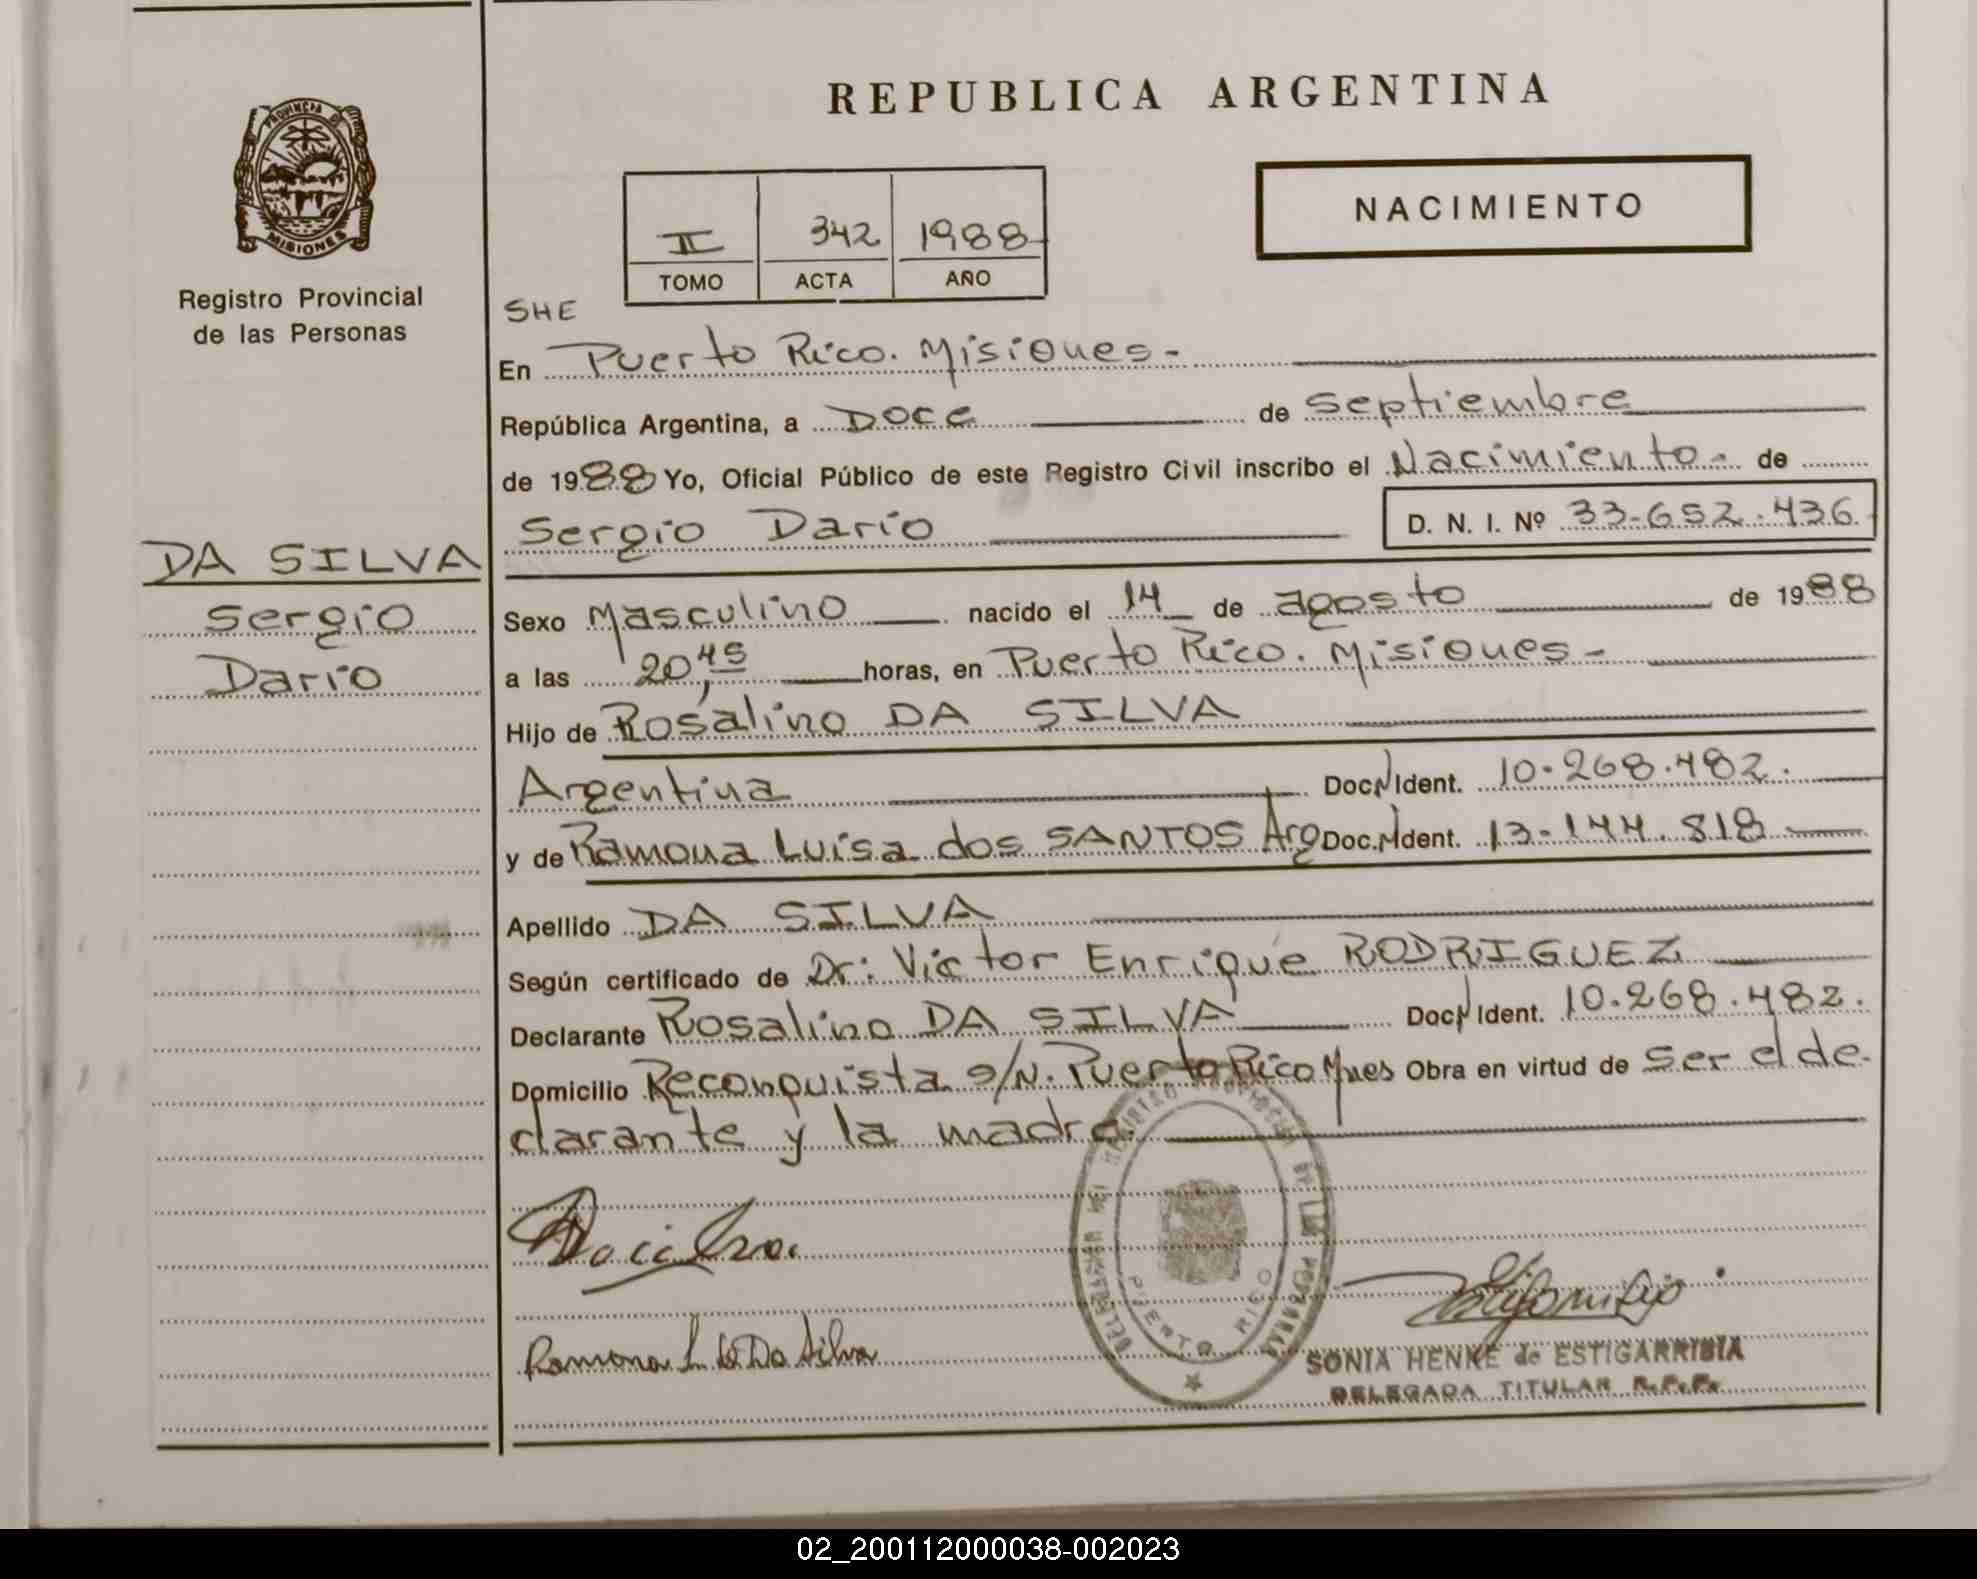 REPUBLICA ARGENTINA
PROVINCIA DE
MISIONES
Registro Provincial
de las Personas
NACIMIENTO
II 342 1988
TOMO ACTA AÑO
SHE
En Puerto Rico. Misiones-
República Argentina, a Doce de Septiembre
de 1988 Yo, Oficial Público de este Registro Civil inscribo el Nacimiento- de
Sergio Dario D. N. I. Nº 33-652.436
DA SILVA
Sergio
Dario
Sexo Masculino nacido el 14 de agosto de 1988
a las 20,45 horas, en Puerto Rico. Misiones-
Hijo de Rosalino DA SILVA
Argentina Doc. Ident. 10.268.482.
y de Ramona Luisa dos SANTOS Arg Doc. Ident. 13-144.818
Apellido DA SILVA
Según certificado de Dr: Victor Enrique RODRIGUEZ
Declarante Rosalino DA SILVA Doc. Ident. 10.268.482.
Domicilio Reconquista s/N. Puerto Rico Mnes Obra en virtud de ser el de-
clarante y la madre.
PUERTO RICO
Ramona L. de Da Silva
SONIA HENKE de ESTIGARRIBIA
DELEGADA TITULAR R.P.P.
02_200112000038-002023